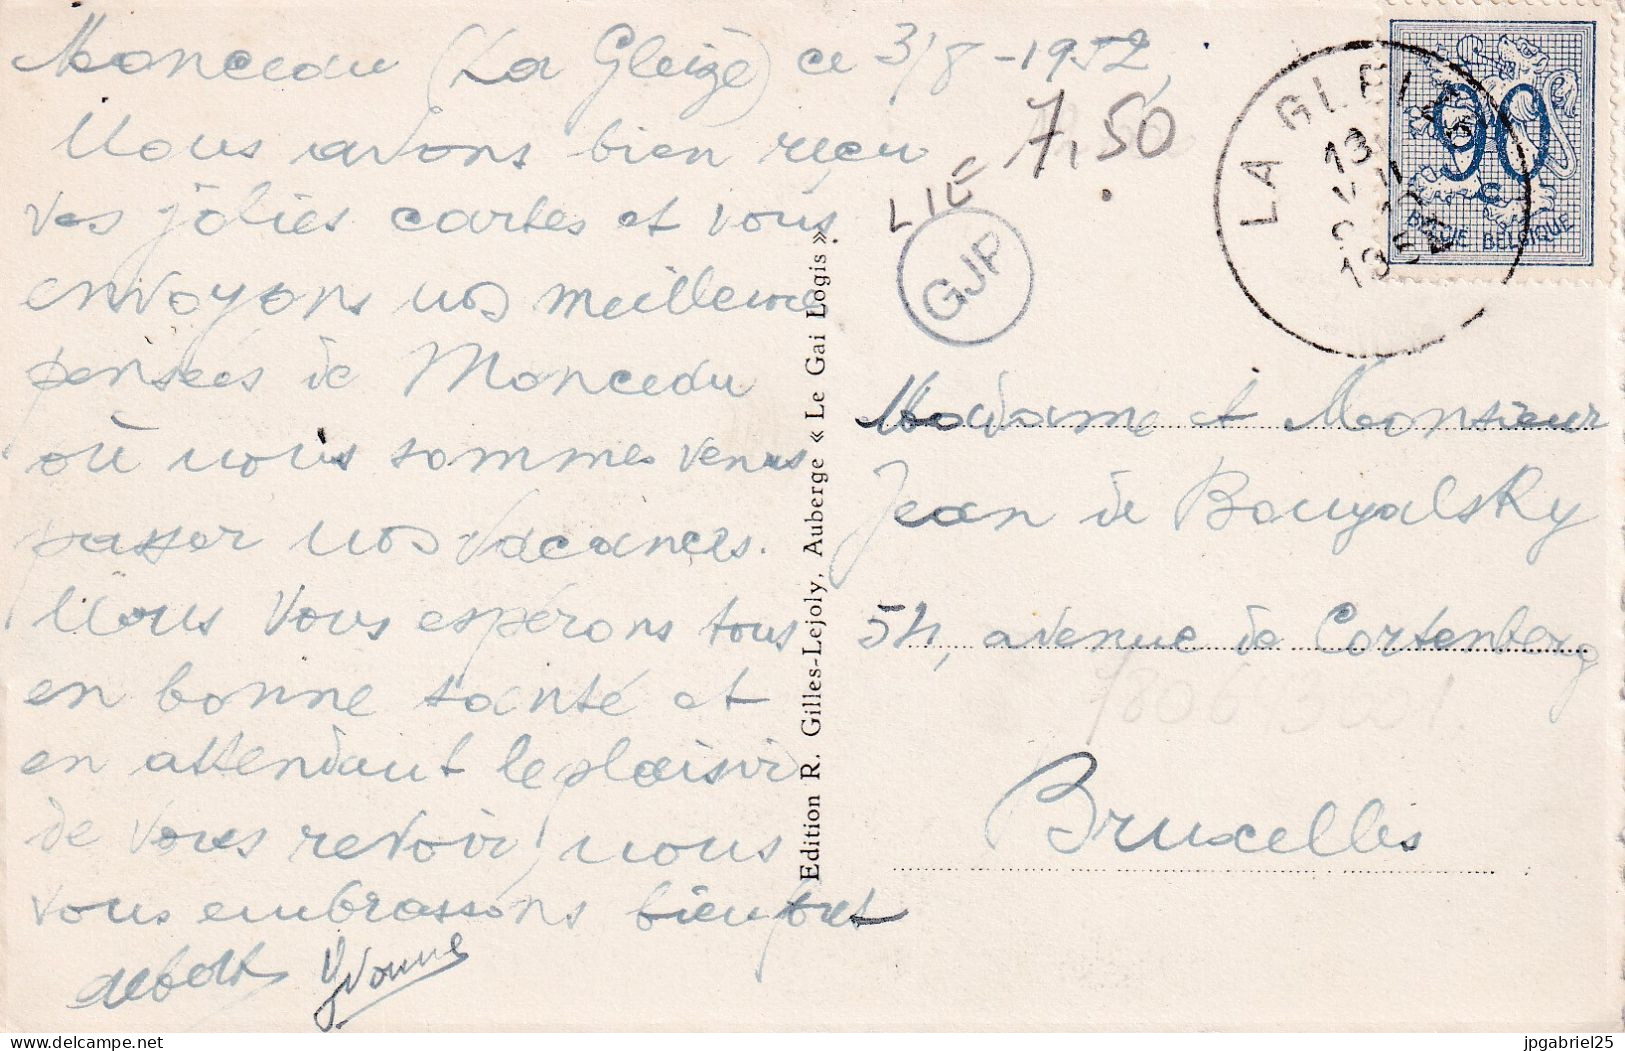 Monceau (La Gleize) ce 3/8-1952,
Nous avons bien reçu
vos jolies cartes et vous
envoyons nos meilleures
pensées de Monceau
où nous sommes venus
passer nos vacances.
Nous vous espérons tous
en bonne santé et
en attendant le plaisir
de vous revoir, nous
vous embrassons bien fort
Albert Yvonne
Edition R. Gilles-Lejoly, Auberge « Le Gai Logis ».
7,50
LIE
GJP
LA GLEIZE
13
1952
90 c
BELGIE BELGIQUE
Madame et Monsieur
Jean de Bougalsky
54, avenue de Cortenberg
Bruxelles
delcampe.net
jpgabriel25